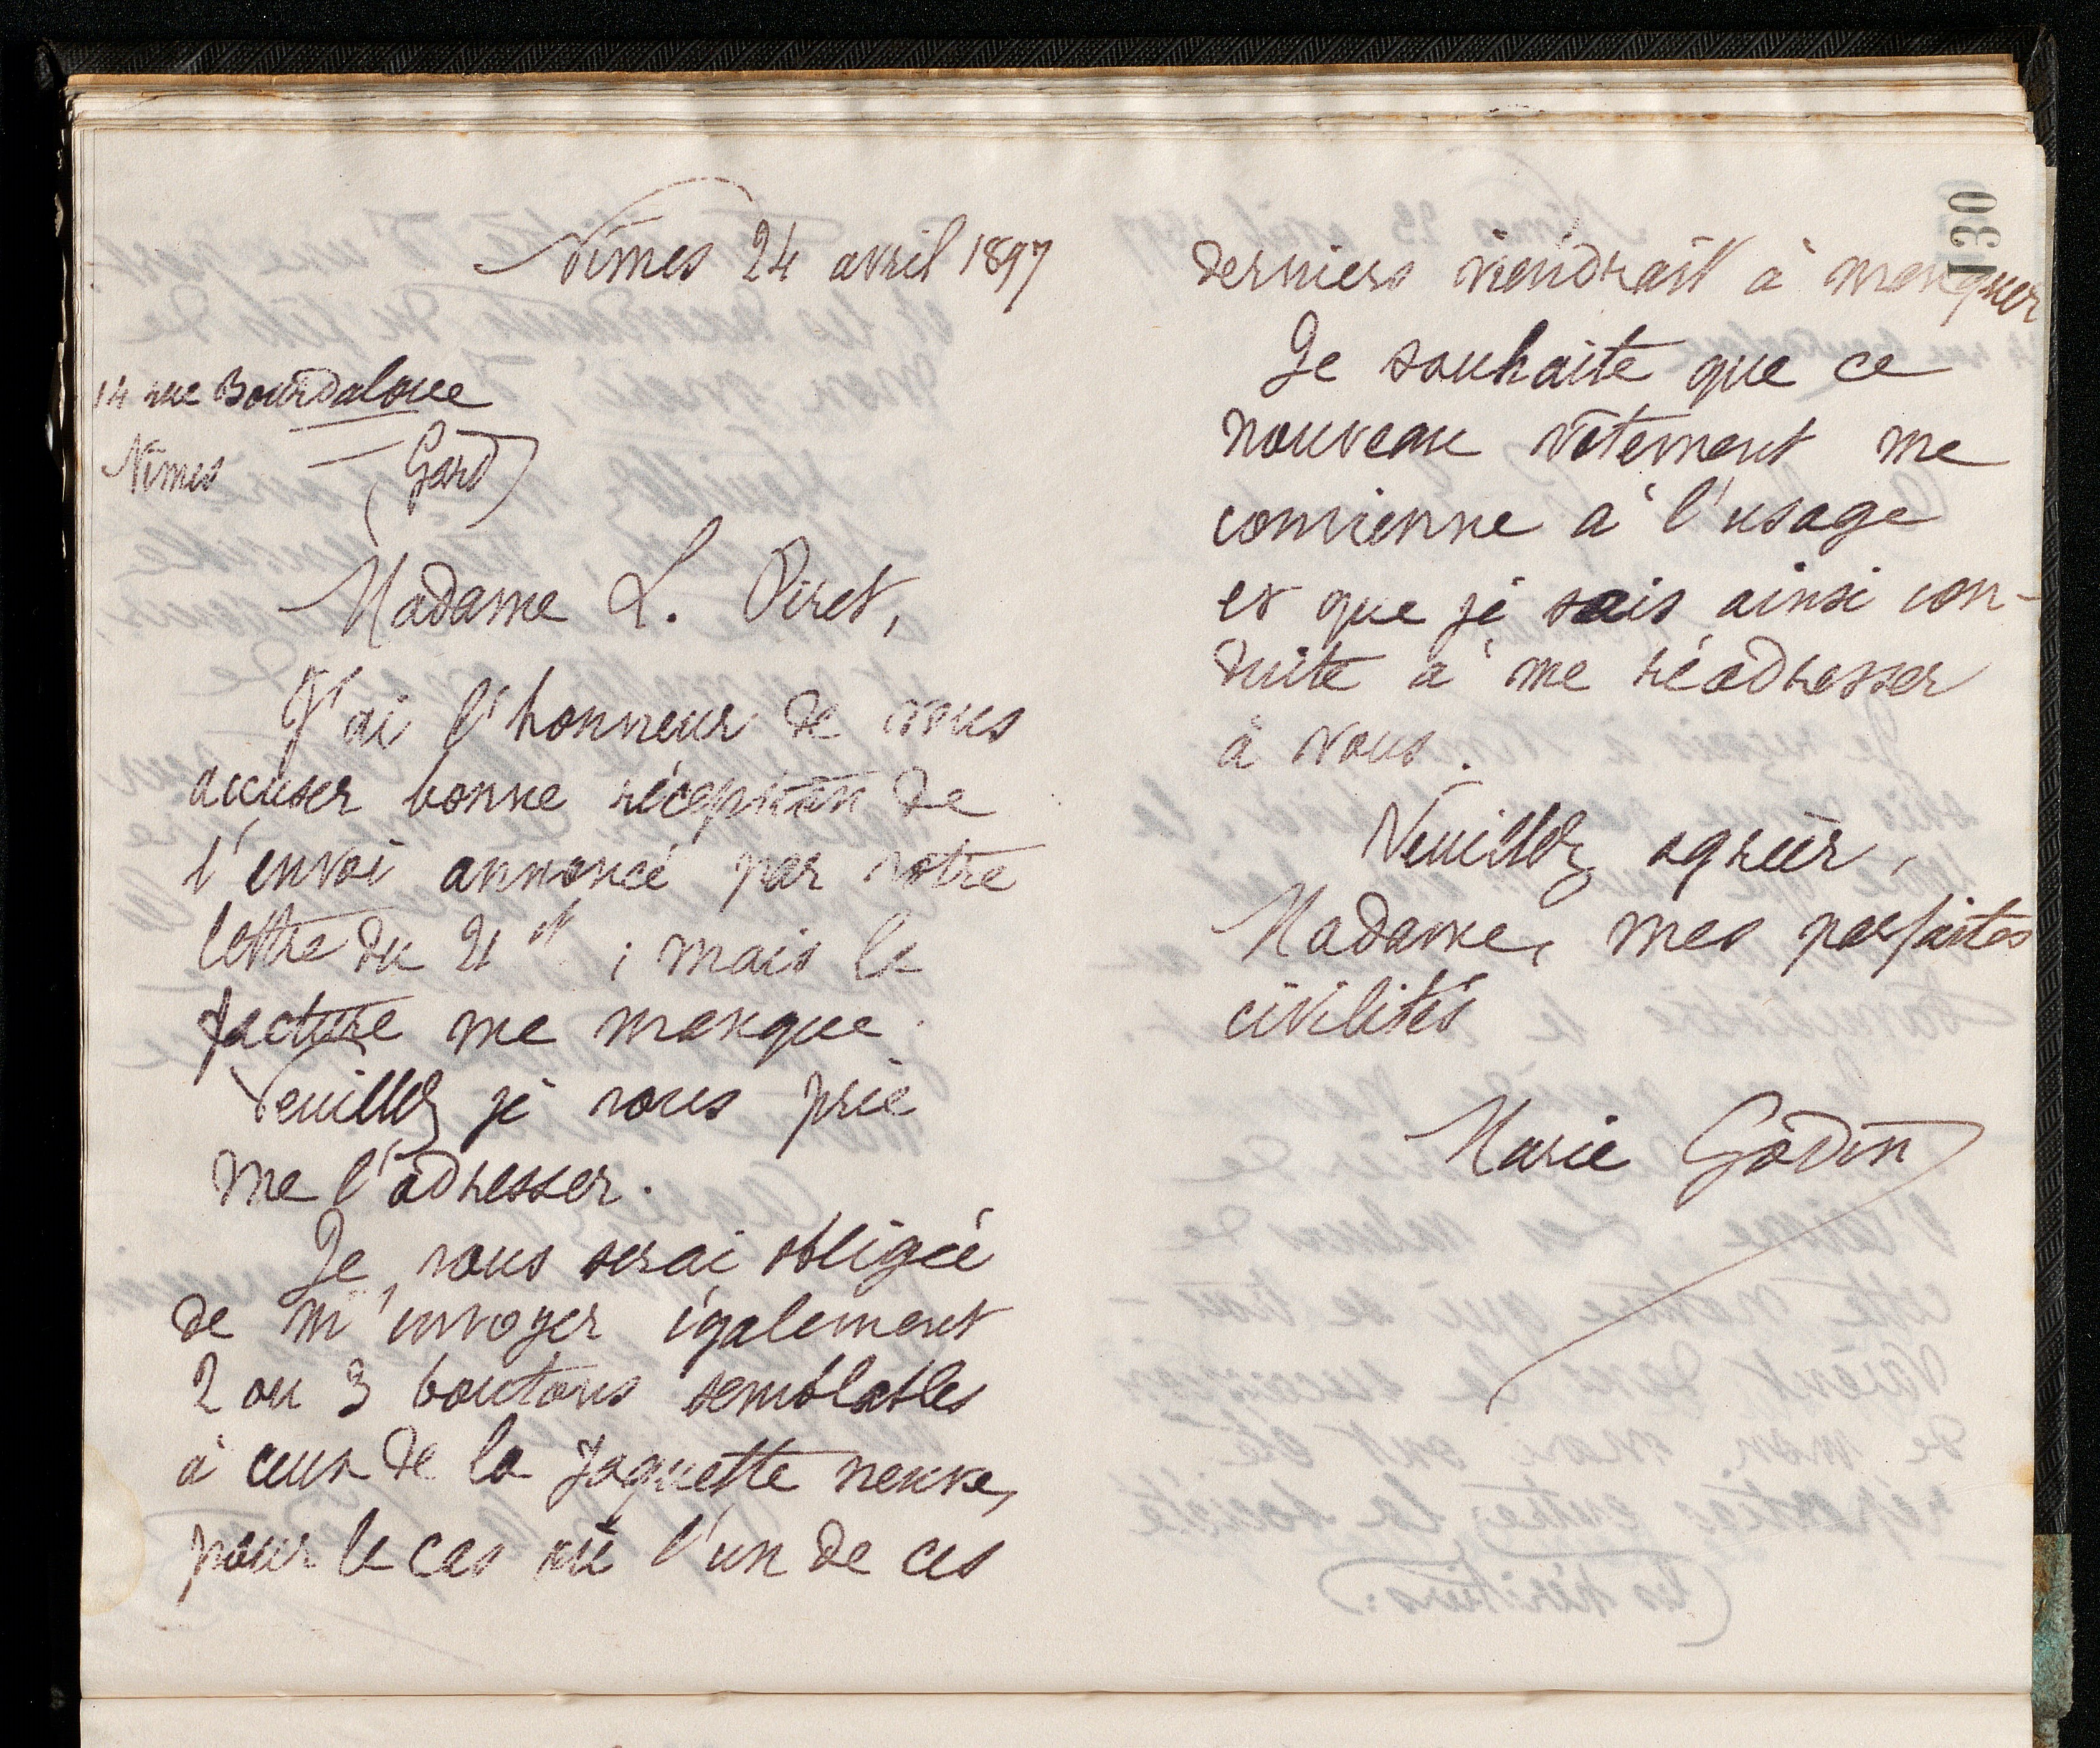 Nîmes 24 avril 1897
14 rue Bourdaloue
Nîmes — (Gard)
Madame L. Piret,
J'ai l'honneur de vous
accuser bonne réception de
l'envoi annoncé par votre
lettre du 21 ct ; mais la
facture me manque.
Veuillez je vous prie
me l'adresser.
Je vous serai obligée
de m'envoyer également
2 ou 3 boutons semblables
à ceux de la jaquette neuve,
pour le cas où l'un de ces
130
derniers viendrait à manquer
Je souhaite que ce
nouveau vêtement me
convienne à l'usage
et que je sois ainsi con-
duite à me réadresser
à vous.
Veuillez agréer,
Madame, mes parfaites
civilités
Marie Godin